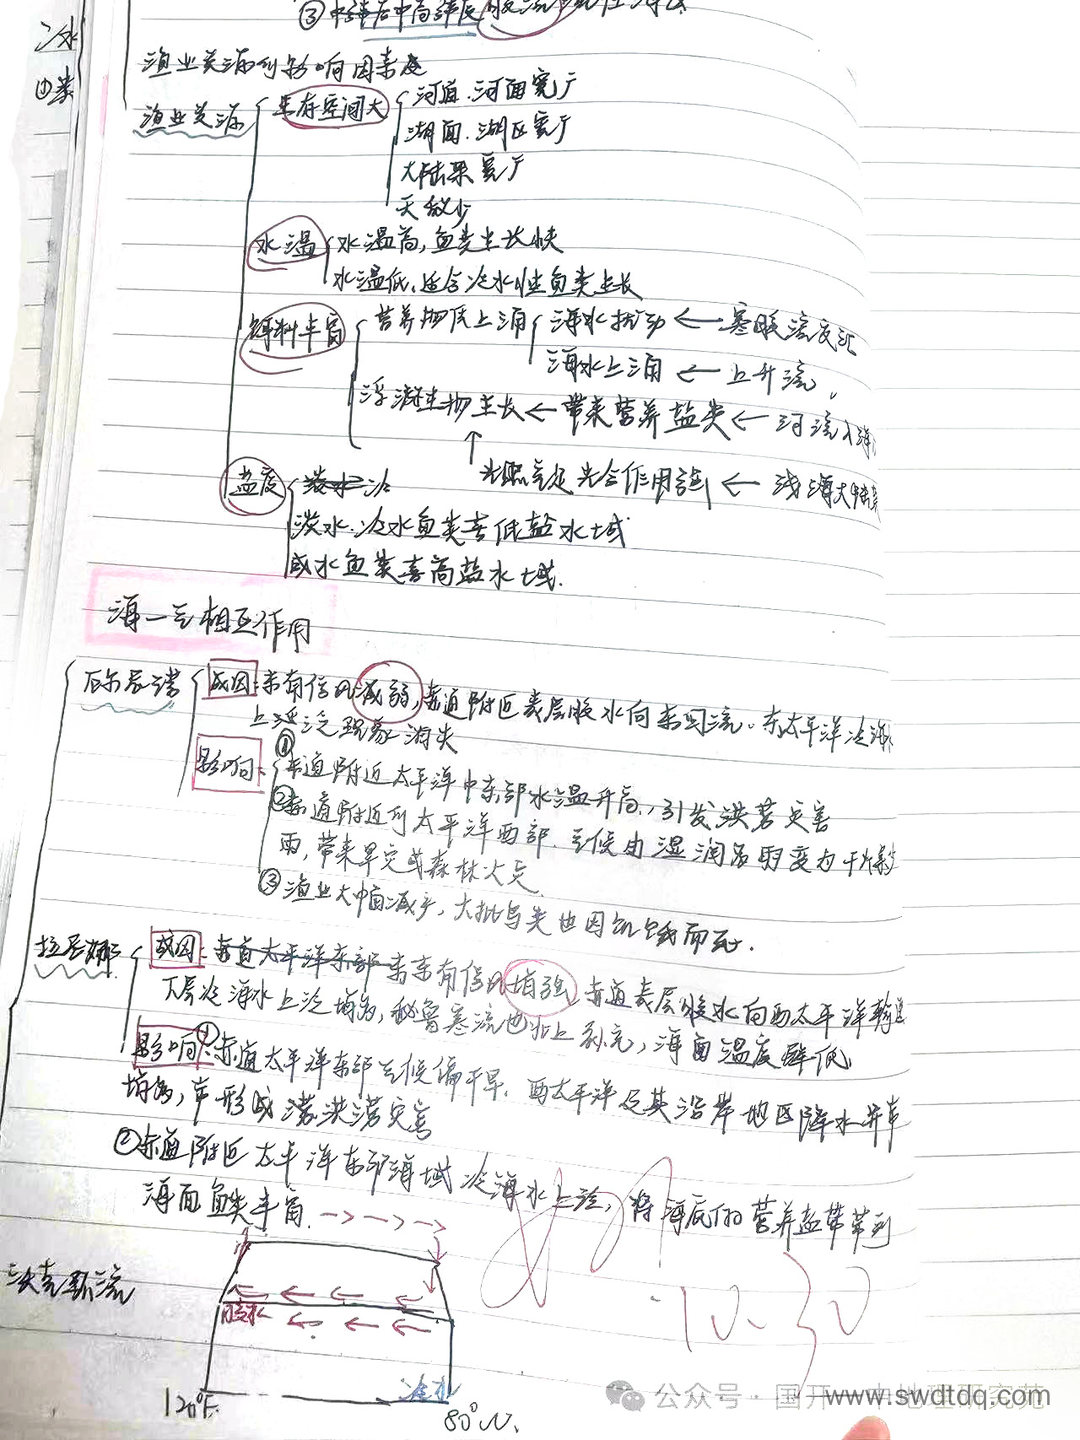 冰
③中纬
渔业资源的影响因素
渔业资源
生存空间大
河道、河面宽广
湖面、湖区宽广
大陆架宽广
天敌少
水温
水温高,鱼类生长快
水温低,适合冷水性鱼类生长
饵料丰富
营养物质上涌
海水扰动 ← 寒暖流交汇
海水上涌 ← 上升流
浮游生物生长 ← 带来营养盐类 ← 河流入海
↑
光照充足光合作用强 ← 浅海大陆架
盐度
淡水、冷水鱼类喜低盐水域
咸水鱼类喜高盐水域.
海一气相互作用
厄尔尼诺
成因:东南信风减弱,赤道附近表层暖水向东回流、东太平洋冷海
上泛现象消失
影响:
①赤道附近太平洋中东部水温升高,引发洪涝灾害
②赤道附近的太平洋西部、气候由湿润多雨变为干燥
雨,带来旱灾或森林火灾
③渔业大幅减产,大批鸟类也因饥饿而死.
拉尼娜
成因:赤道太平洋东部东南信风增强,赤道表层暖水向西太平洋输送
下层冷海水上泛增多,秘鲁寒流也北上补充,海面温度降低
影响:①赤道太平洋东部气候偏干旱、西太平洋及其沿岸地区降水异常
增多,常形成洪涝灾害
②赤道附近太平洋东部海域冷海水上泛,将海底的营养盐带到
海面鱼类丰富.
沃克环流
暖水
冷水
120°E
80°W.
10.30
公众号·国开
www.swdtdq.com